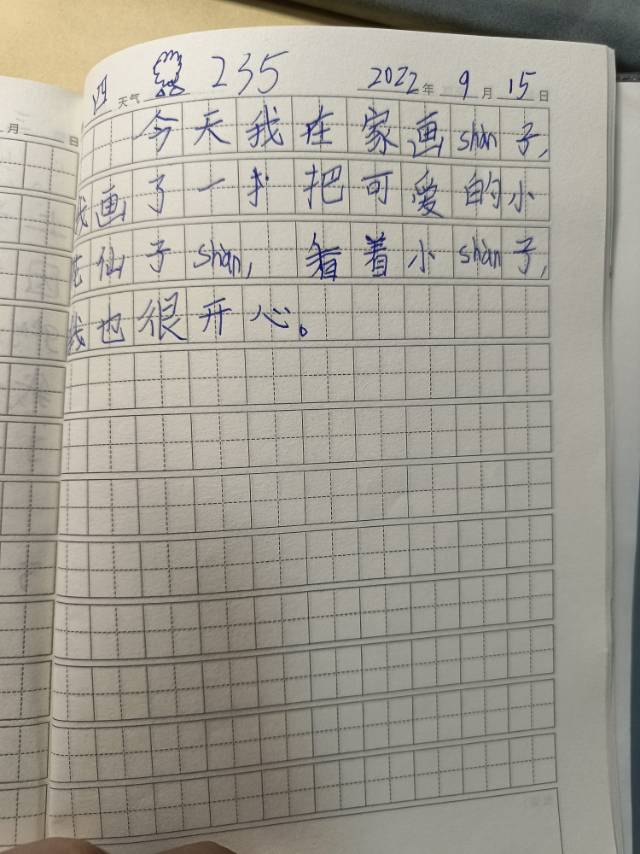 四 天气 235 2022年 9月 15日
月 日
今天我在家画shàn子,
我画了一 把可爱的小
花仙子shàn, 看着小shàn子,
我也很开心。